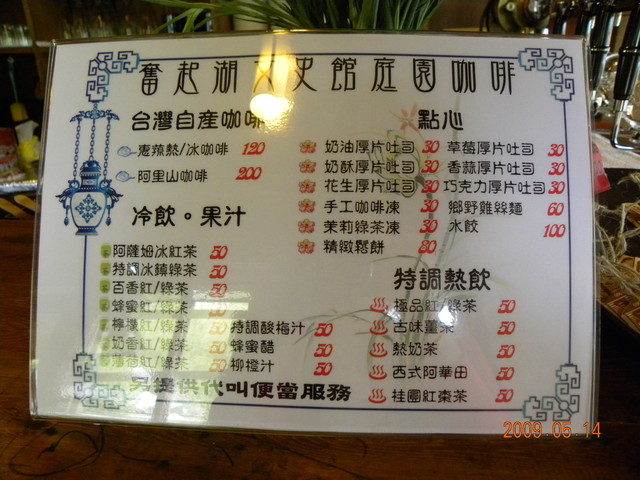 奮起湖文史館庭園咖啡
台灣自產咖啡
惠蓀熱/冰咖啡 120
阿里山咖啡 200
冷飲。果汁
阿薩姆冰紅茶 50
特調冰鎮綠茶 50
百香紅/綠茶 50
蜂蜜紅/綠茶
檸檬紅/綠茶 50
奶香紅/綠茶 50
紅/綠茶 50
特調酸梅汁 50
蜂蜜醋 50
柳橙汁 50
點心
奶油厚片吐司 30
奶酥厚片吐司 30
花生厚片吐司 30
手工咖啡凍 30
茉莉綠茶凍 30
精緻鬆餅 80
草莓厚片吐司 30
香蒜厚片吐司 30
巧克力厚片吐司 30
鄉野雞絲麵 60
水餃 100
特調熱飲
極品紅/綠茶 50
古味薑茶 50
熱奶茶 50
西式阿華田 50
桂圓紅棗茶 50
另提供代叫便當服務
2009.05.14